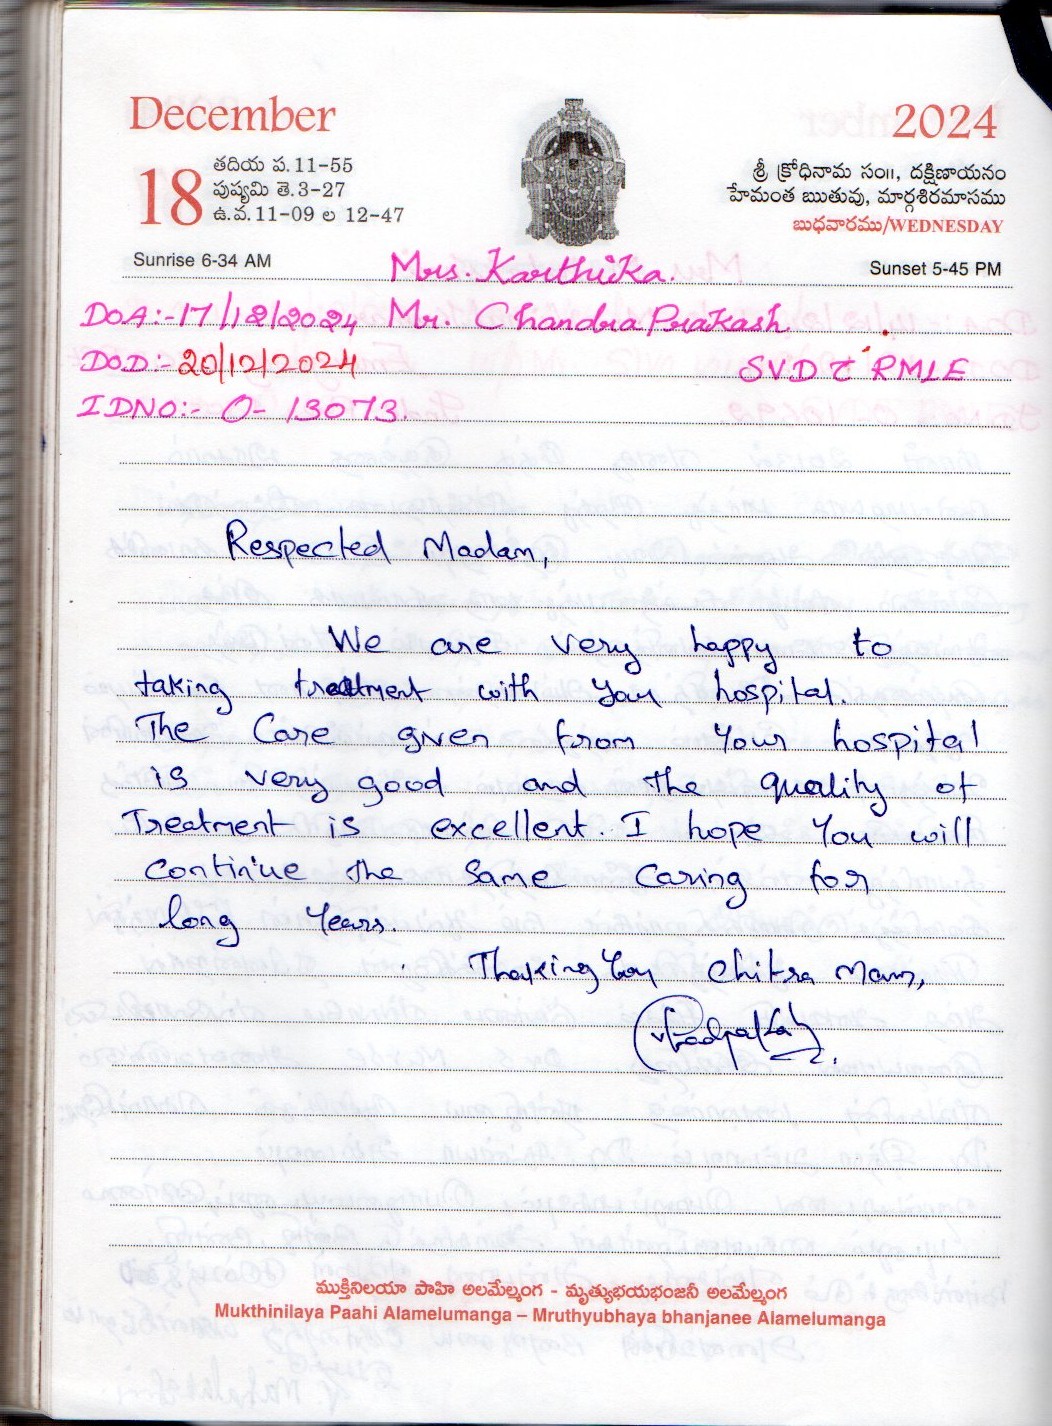 December
2024
18
తదియ ప. 11-55
పుష్యమి తె. 3-27
ఉ.వ. 11-09 ల 12-47
శ్రీ క్రోధినామ సం॥, దక్షిణాయనం
హేమంత ఋతువు, మార్గశిరమాసము
బుధవారము/WEDNESDAY
Sunrise 6-34 AM
Sunset 5-45 PM
Mrs. Karthika.
DOA:- 17/12/2024 Mr. Chandra Prakash
DOD:- 20/12/2024 SVD RMLE
IDNO:- O- 13073.
Respected Madam,
We are very happy to
taking treatment with you hospital.
The Care given from your hospital
is very good and the quality of
Treatment is excellent. I hope you will
continue the same caring for
long years.
Thaking you chitra mam,
ముక్తినిలయా పాహి అలమేల్మంగ - మృత్యుభయభంజనీ అలమేల్మంగ
Mukthinilaya Paahi Alamelumanga – Mruthyubhaya bhanjanee Alamelumanga